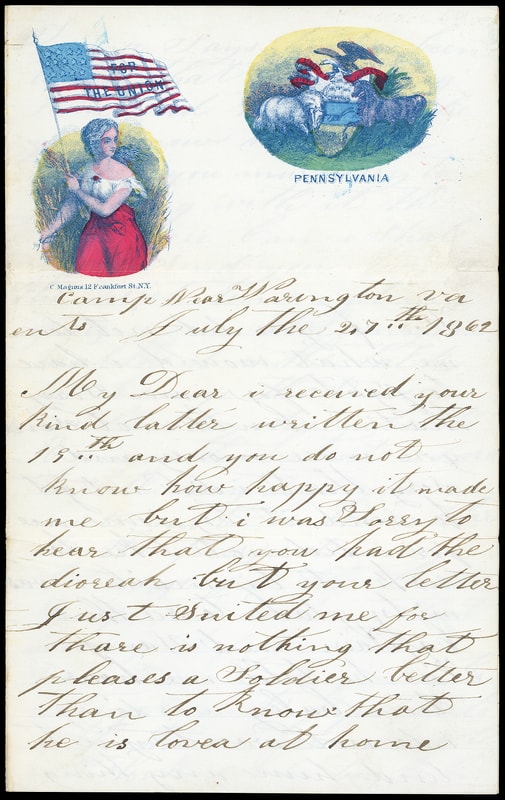 FOR
THE UNION
PENNSYLVANIA
C Magnus 12 Frankfort St. N.Y.
Camp Near Warington va
July the 27th 1862
My Dear i received your
kind latter written the
19th and you do not
know how happy it made
me but i was Sorry to
hear that you had the
dioreah but your letter
Just Suited me for
thare is nothing that
pleases a Soldier better
than to know that
he is loved at home